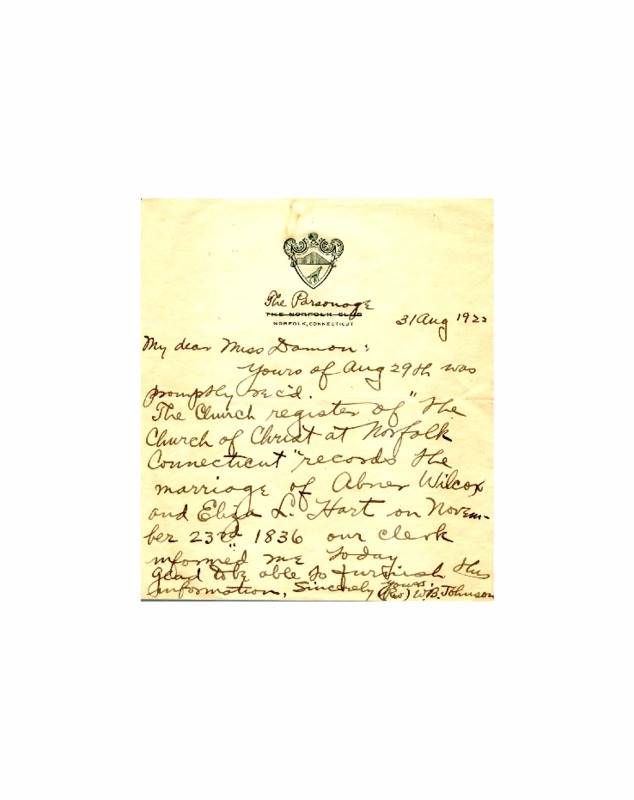 The Parsonage
THE NORFOLK CLUB
NORFOLK, CONNECTICUT
31 Aug 1922
My dear Miss Damon:
Yours of Aug 29th was
promptly rec'd.
The Church register of "The
Church of Christ at Norfolk
Connecticut" records the
marriage of Abner Wilcox
and Eliza L. Hart on Novem-
ber 23rd 1836 our clerk
informed me today
Glad to be able to furnish this
information, Sincerely yours,
(Rev) W.B. Johnson